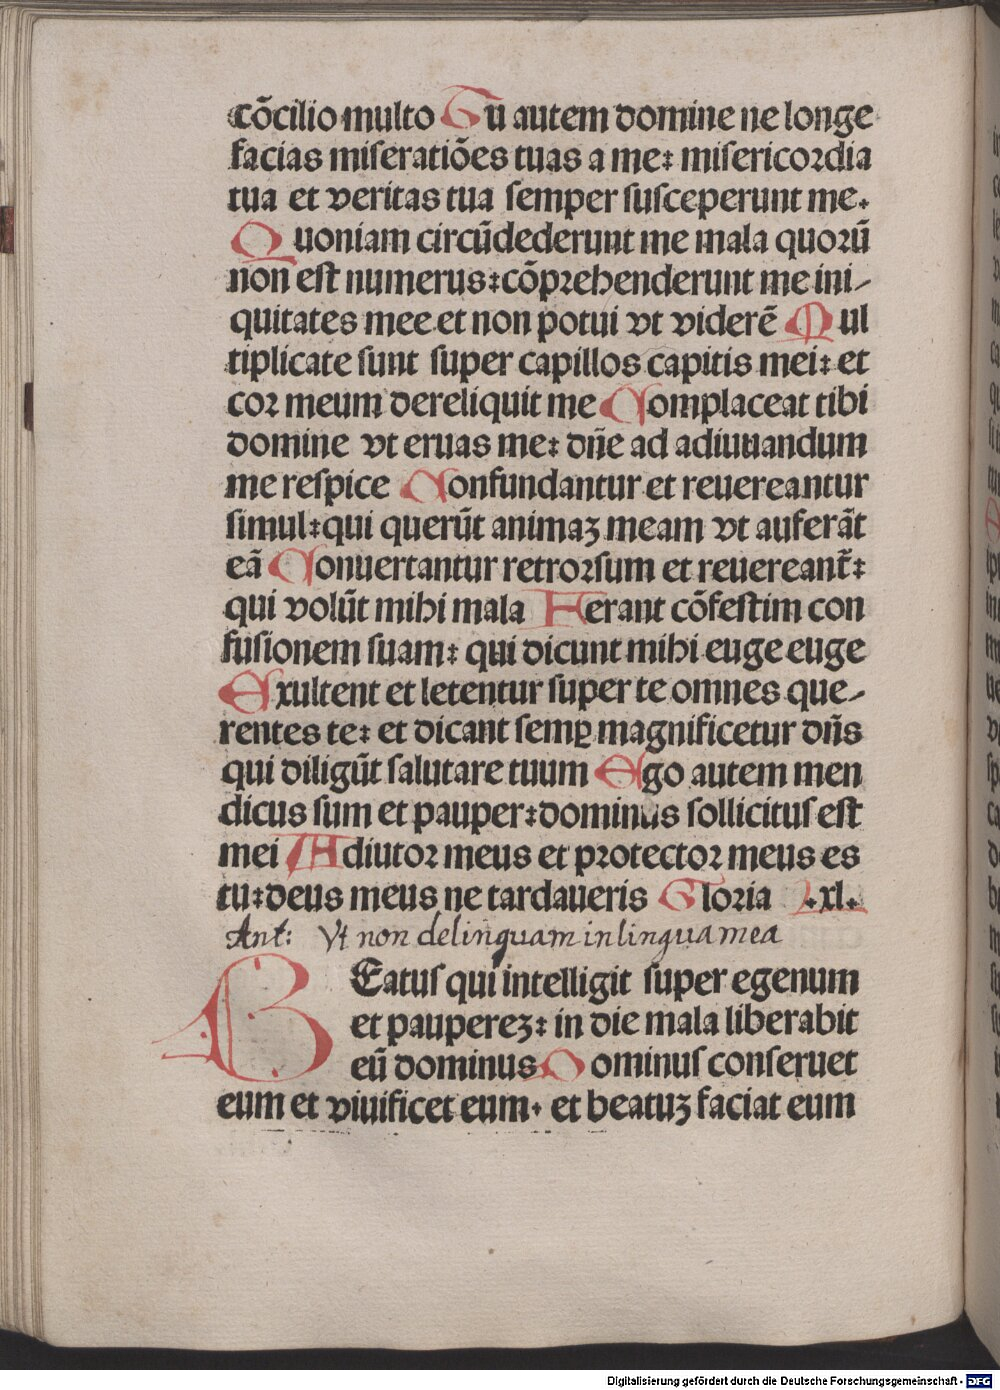 cõcilio multo Tu autem domine ne longe
facias miseratiões tuas a me: misericordia
tua et veritas tua semper susceperunt me.
Quoniam circũdederunt me mala quorũ
non est numerus: cõprehenderunt me ini-
quitates mee et non potui vt viderẽ Mul
tiplicate sunt super capillos capitis mei: et
cor meum dereliquit me Complaceat tibi
domine vt eruas me: dñe ad adiuuandum
me respice Confundantur et reuereantur
simul: qui querũt animaꝫ meam vt auferãt
eã Conuertantur retrorsum et reuereant̃:
qui volũt mihi mala Ferant cõfestim con
fusionem suam: qui dicunt mihi euge euge
Exultent et letentur super te omnes que-
rentes te: et dicant semꝑ magnificetur dñs
qui diligũt salutare tuum Ego autem men
dicus sum et pauper: dominus sollicitus est
mei Adiutor meus et protector meus es
tu: deus meus ne tardaueris Gloria .xl.
Ant: Vt non delinquam in lingua mea
BEatus qui intelligit super egenum
et paupereꝫ: in die mala liberabit
eũ dominus Dominus conseruet
eum et viuificet eum. et beatuꝫ faciat eum
Digitalisierung gefördert durch die Deutsche Forschungsgemeinschaft - DFG